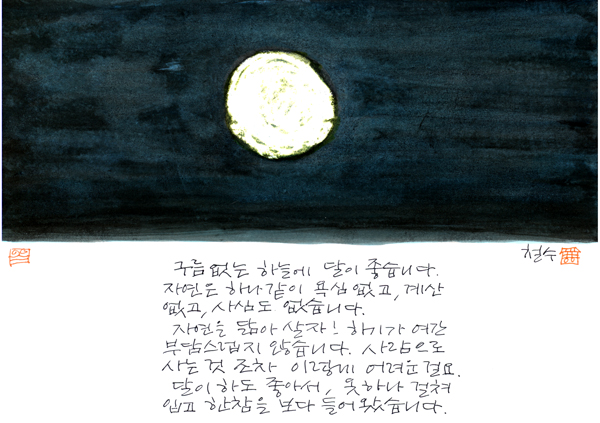 철수
구름 없는 하늘에 달이 좋습니다.
자연은 하나같이 욕심 없고, 계산
없고, 사심도 없습니다.
자연을 닮아 살자! 하기가 여간
부담스럽지 않습니다. 사람으로
사는 것 조차 이렇게 어려운 걸요.
달이 하도 좋아서, 옷하나 걸쳐
입고 한참을 보다 들어왔습니다.